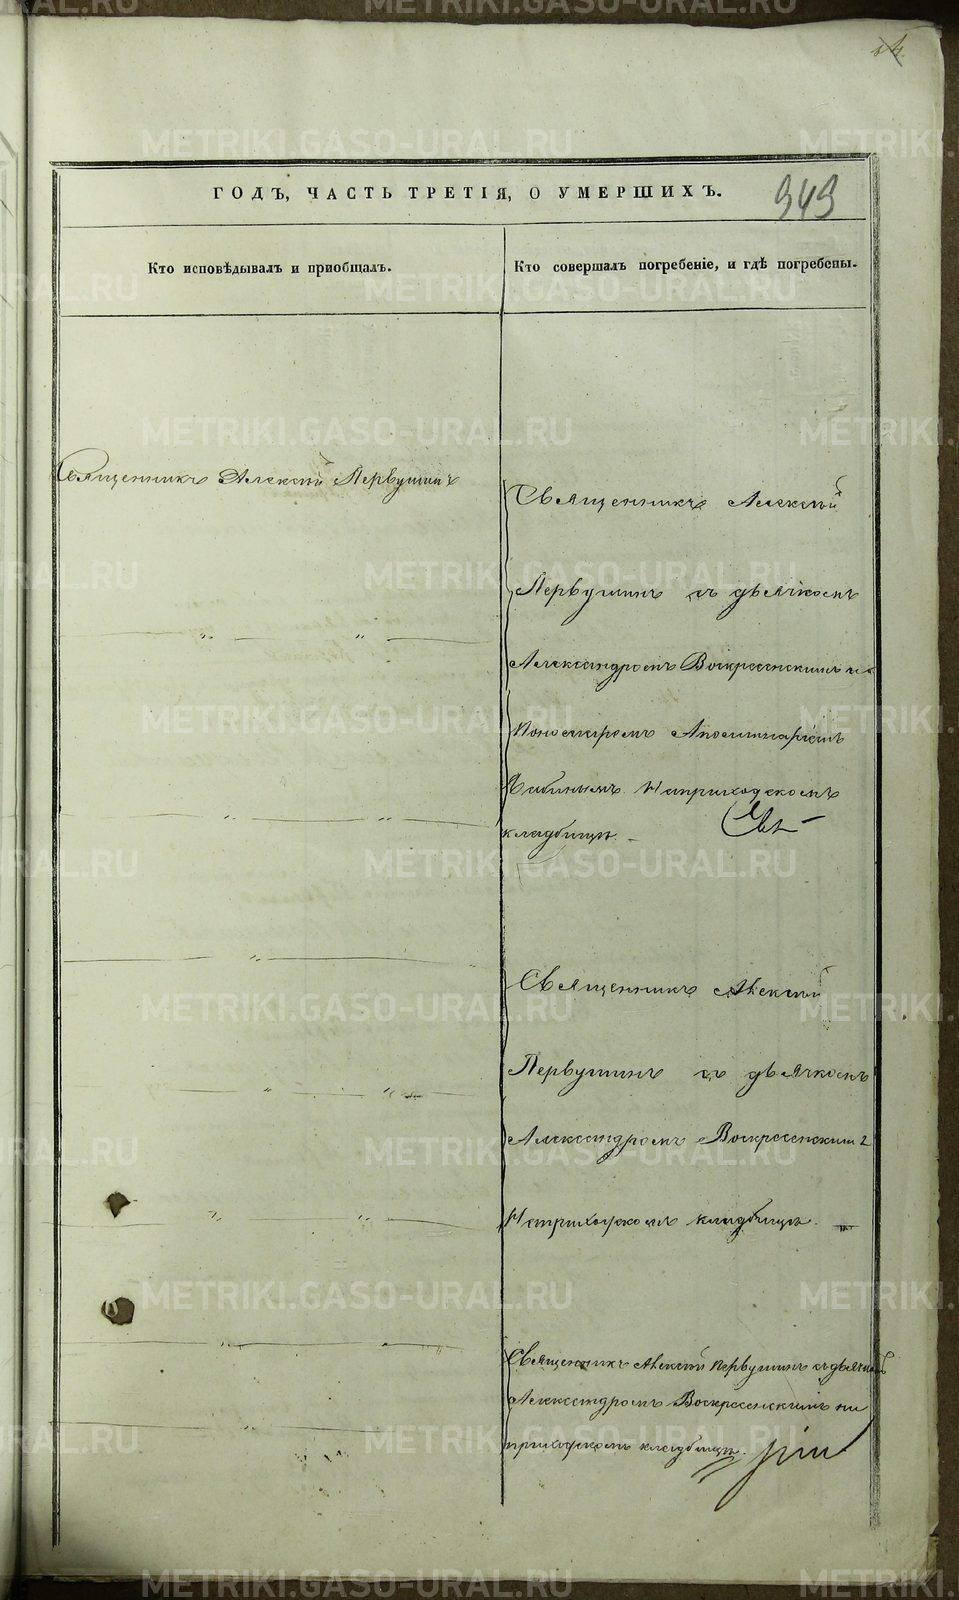 ГОДЪ, ЧАСТЬ ТРЕТІЯ, О УМЕРШИХЪ.
949
Кто исповѣдывалъ и приобщалъ.
Кто совершалъ погребеніе, и гдѣ погребены.
Священникъ Алексѣй Первушинъ
Священникъ Алексѣй
Первушинъ съ дьячкомъ
Александромъ Воскресенскимъ
Пономаремъ Аполинаріемъ
На приходскомъ
кладбищѣ.
Священникъ Алексѣй
Первушинъ съ дьячкомъ
Александромъ Воскресенским
На приходскомъ кладбищѣ.
Священникъ Алексѣй Первушинъ съ дьячкомъ
Александромъ Воскресенскимъ на
приходскомъ кладбищѣ.
METRIKI.GASO-URAL.RU